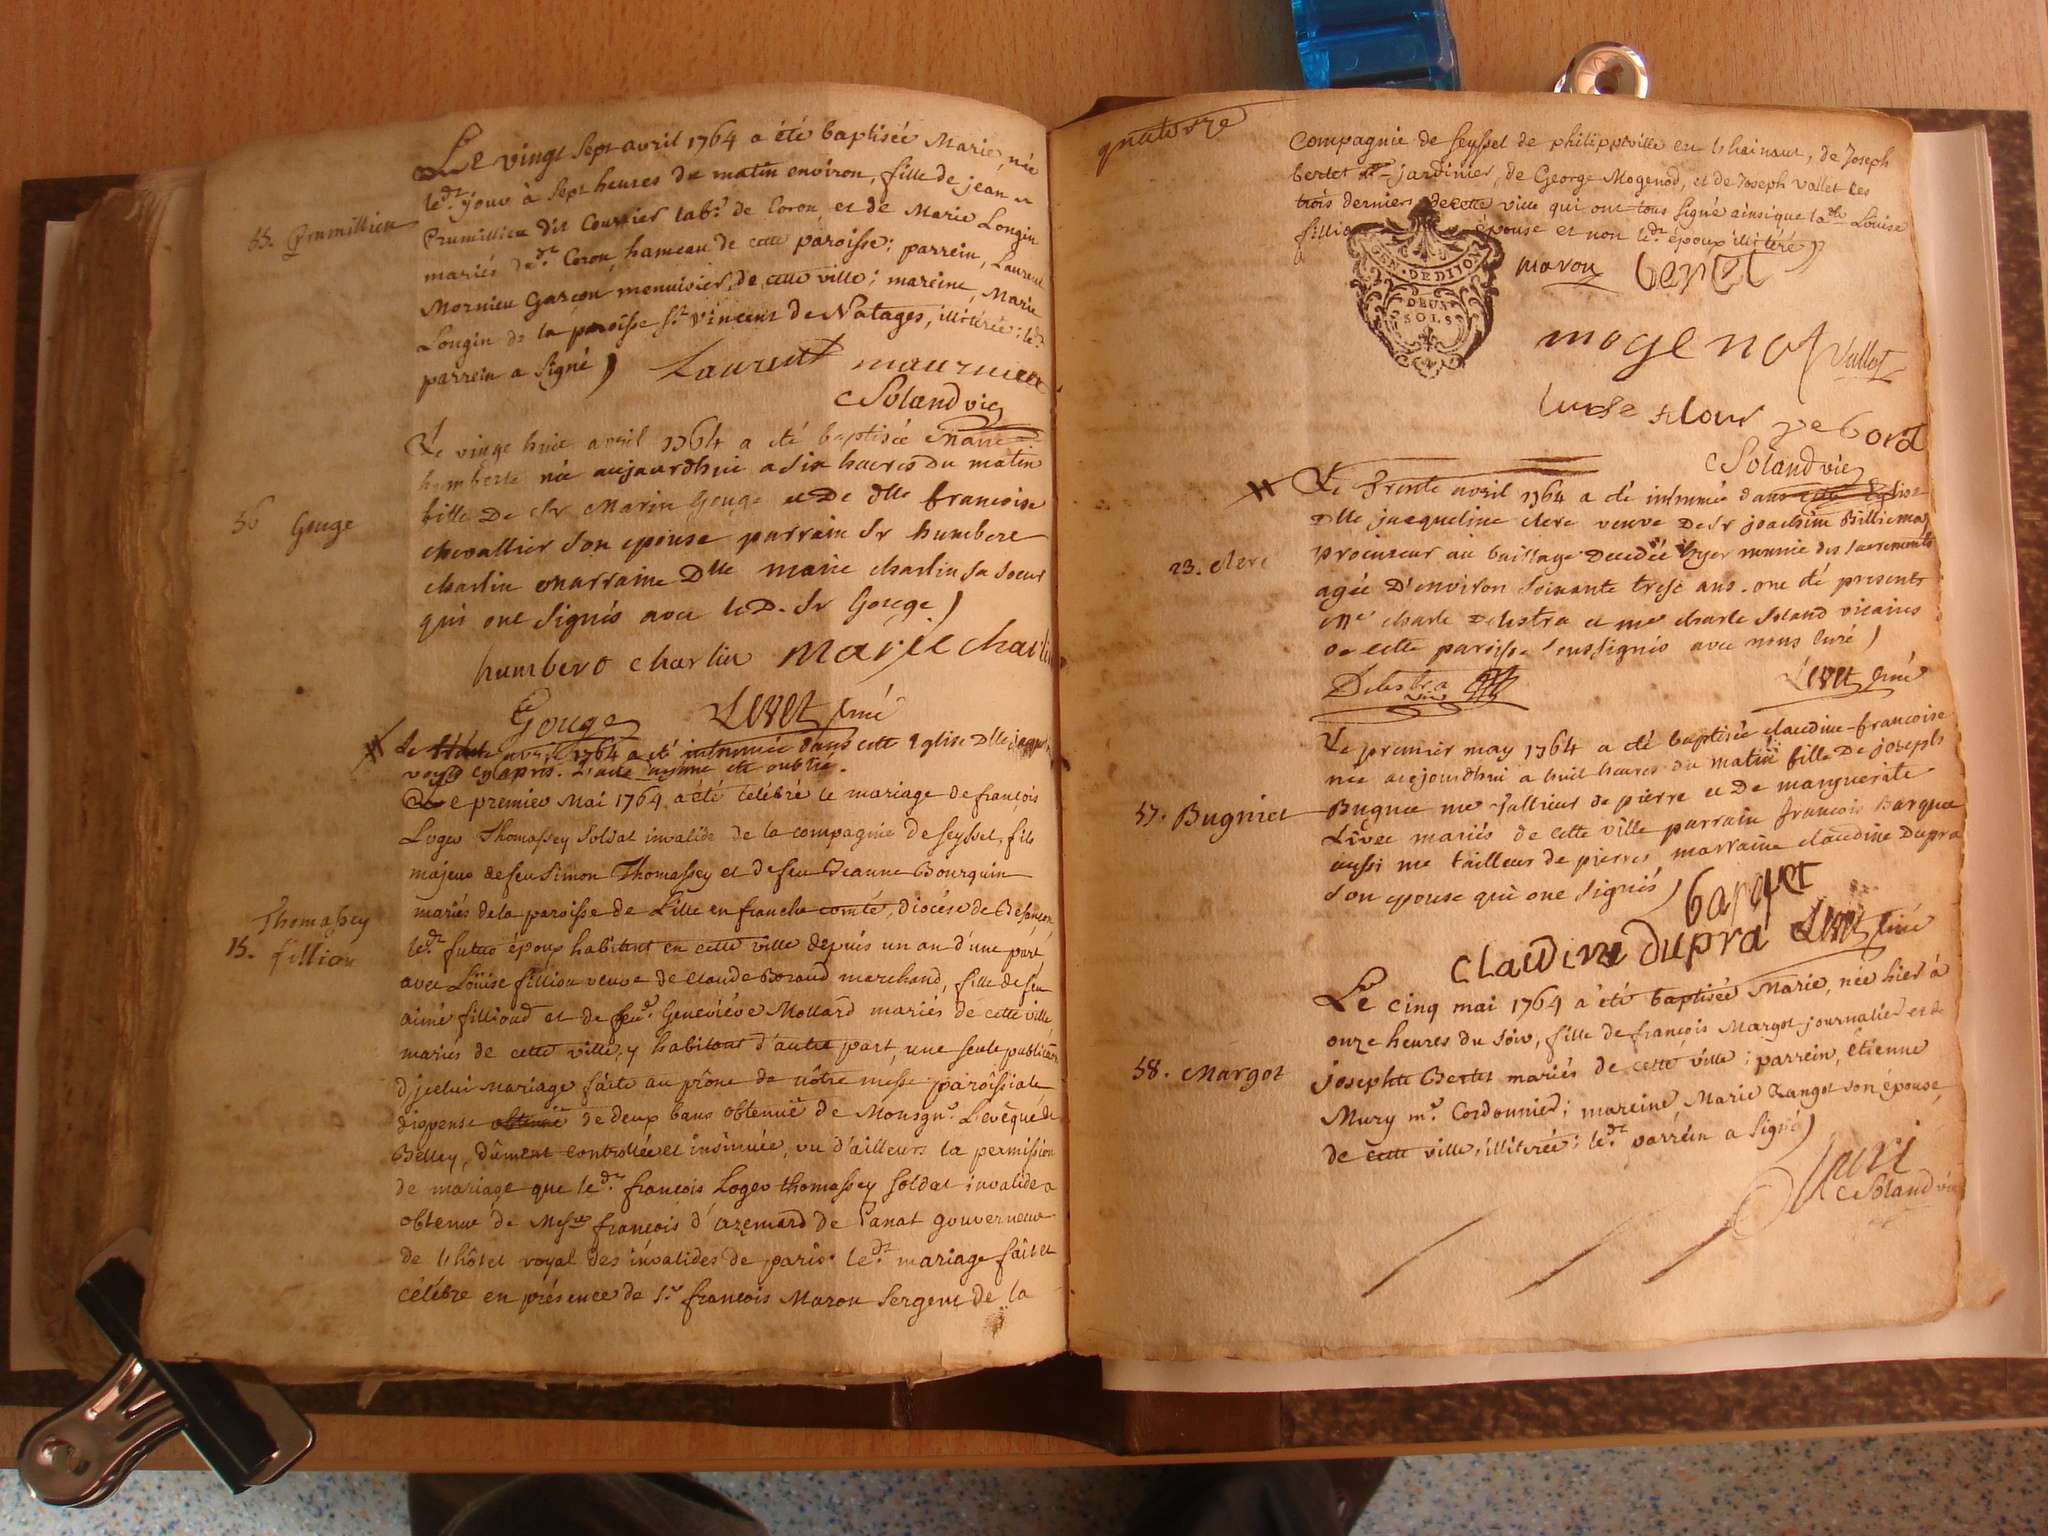 Le vingt Sept avril 1764 a été baptisée Marie, née
led.t jour à Sept heures du matin environ, fille de jean
55. Prumillieu
Prumillieu dit Courrier lab.r de Coron, et de Marie Longin
mariés de d.t Coron, hameau de cette paroisse; parrein, Laurent
Mornieu Garçon menuisier, de cette ville; mareine, Marie
Longin de la paroisse s.t vincent de Natages, illitérée; led.t
parrein a signé)
Laurent
CSoland vic
Le vingt huit avril 1764 a été baptisée marie
humberte née aujourdhui a six heures du matin
fille De Sr Marin Gouge et De dlle francoise
56 Gouge
chevallier son epouse parrain Sr humbert
charlin marraine Dlle marie charlin sa soeur
qui ont signés avec le D. Sr Gouge)
humbert charlin Marie charlin
Gouge Livet curé
Le trente avril 1764 a été inhumée dans cette Eglise Dlle
voyés cy apres. L'acte ayant été oublié.
Le premier Mai 1764 a été célébré le mariage de françois
Loger Thomassey soldat invalide de la compagnie de seyssel, fils
majeur de feu Simon Thomassey et de feu Jeanne Bourquin
mariés de la paroisse de Lille en franche comté, diocése de Besançon,
Thomassey
15. fillion
led.t futur époux habitant en cette ville depuis un an d'une part,
avec Loüise fillion veuve de claude Boraud marchand, fille de feu
aimé filliond et de feu.e Geneviéve Mollard mariés de cette ville,
mariés de cette ville, y habitant d'autre part, une seule publication
d'jcelui mariage faite au prône de nôtre messe paroissiale
dispense obtenüe de deux bans obtenuë de Monsgn.r L'evêque de
Belley, dûment controllée et insinuée, vu d'ailleurs la permission
de mariage que led.t françois Loger thomassey soldat invalide a
obtenue de Mess.re françois d'azemard de Panat gouverneur
de l'hôtel royal des invalides de paris. led.t mariage fait et
célébré en présence de S.r françois Maron sergent de la
quatorze
Compagnie de seyssel de philippeville en hhainaut, de Joseph
bertet jardinier, de George Mogenod, et de Joseph Vallet les
trois derniers de cette ville qui ont tous signé ainsi que lad.te Loüise
fillion épouse et non led.t époux illitéré)
GEN. DE DIJON
DEUX
SOLS
maron bertet
mogenod Vallet
CSoland vic
Le Trente avril 1764 a été inhumée dans cette Eglise
Dlle jacqueline clerc veuve De Sr joachim Billiemaz
procureur au baillage Decedée hyer munie des sacrements
23. Clerc
agée D'environ soixante treise ans. ont été presents
me charle Delestra et me charle Soland vicaires
de cette paroisse soussignés avec nous Curé)
Delestra vic Livet curé
Le premier may 1764 a été baptisée claudine-francoise
née aujourdhui a huit heures du matin fille De joseph
57. Bugniet
Bugnet me tallieur de pierre et De marguerite
Livet mariés de cette ville parrain francois Barquet
aussi me tailleur de pierres marraine claudine Dupra
son epouse qui ont signés)
barquet
Claudine dupra Livet curé
Le cinq mai 1764 a été baptisée Marie, née hier à
onze heures du soir, fille de françois Margot journalier et de
58. Margot
josephte Bertet mariés de cette ville; parrein, étienne
Mury m.e Cordonnier; mareine Marie Zangot son épouse,
de cette ville, illitérée; led.t parrein a signé)
Muri
CSoland vic